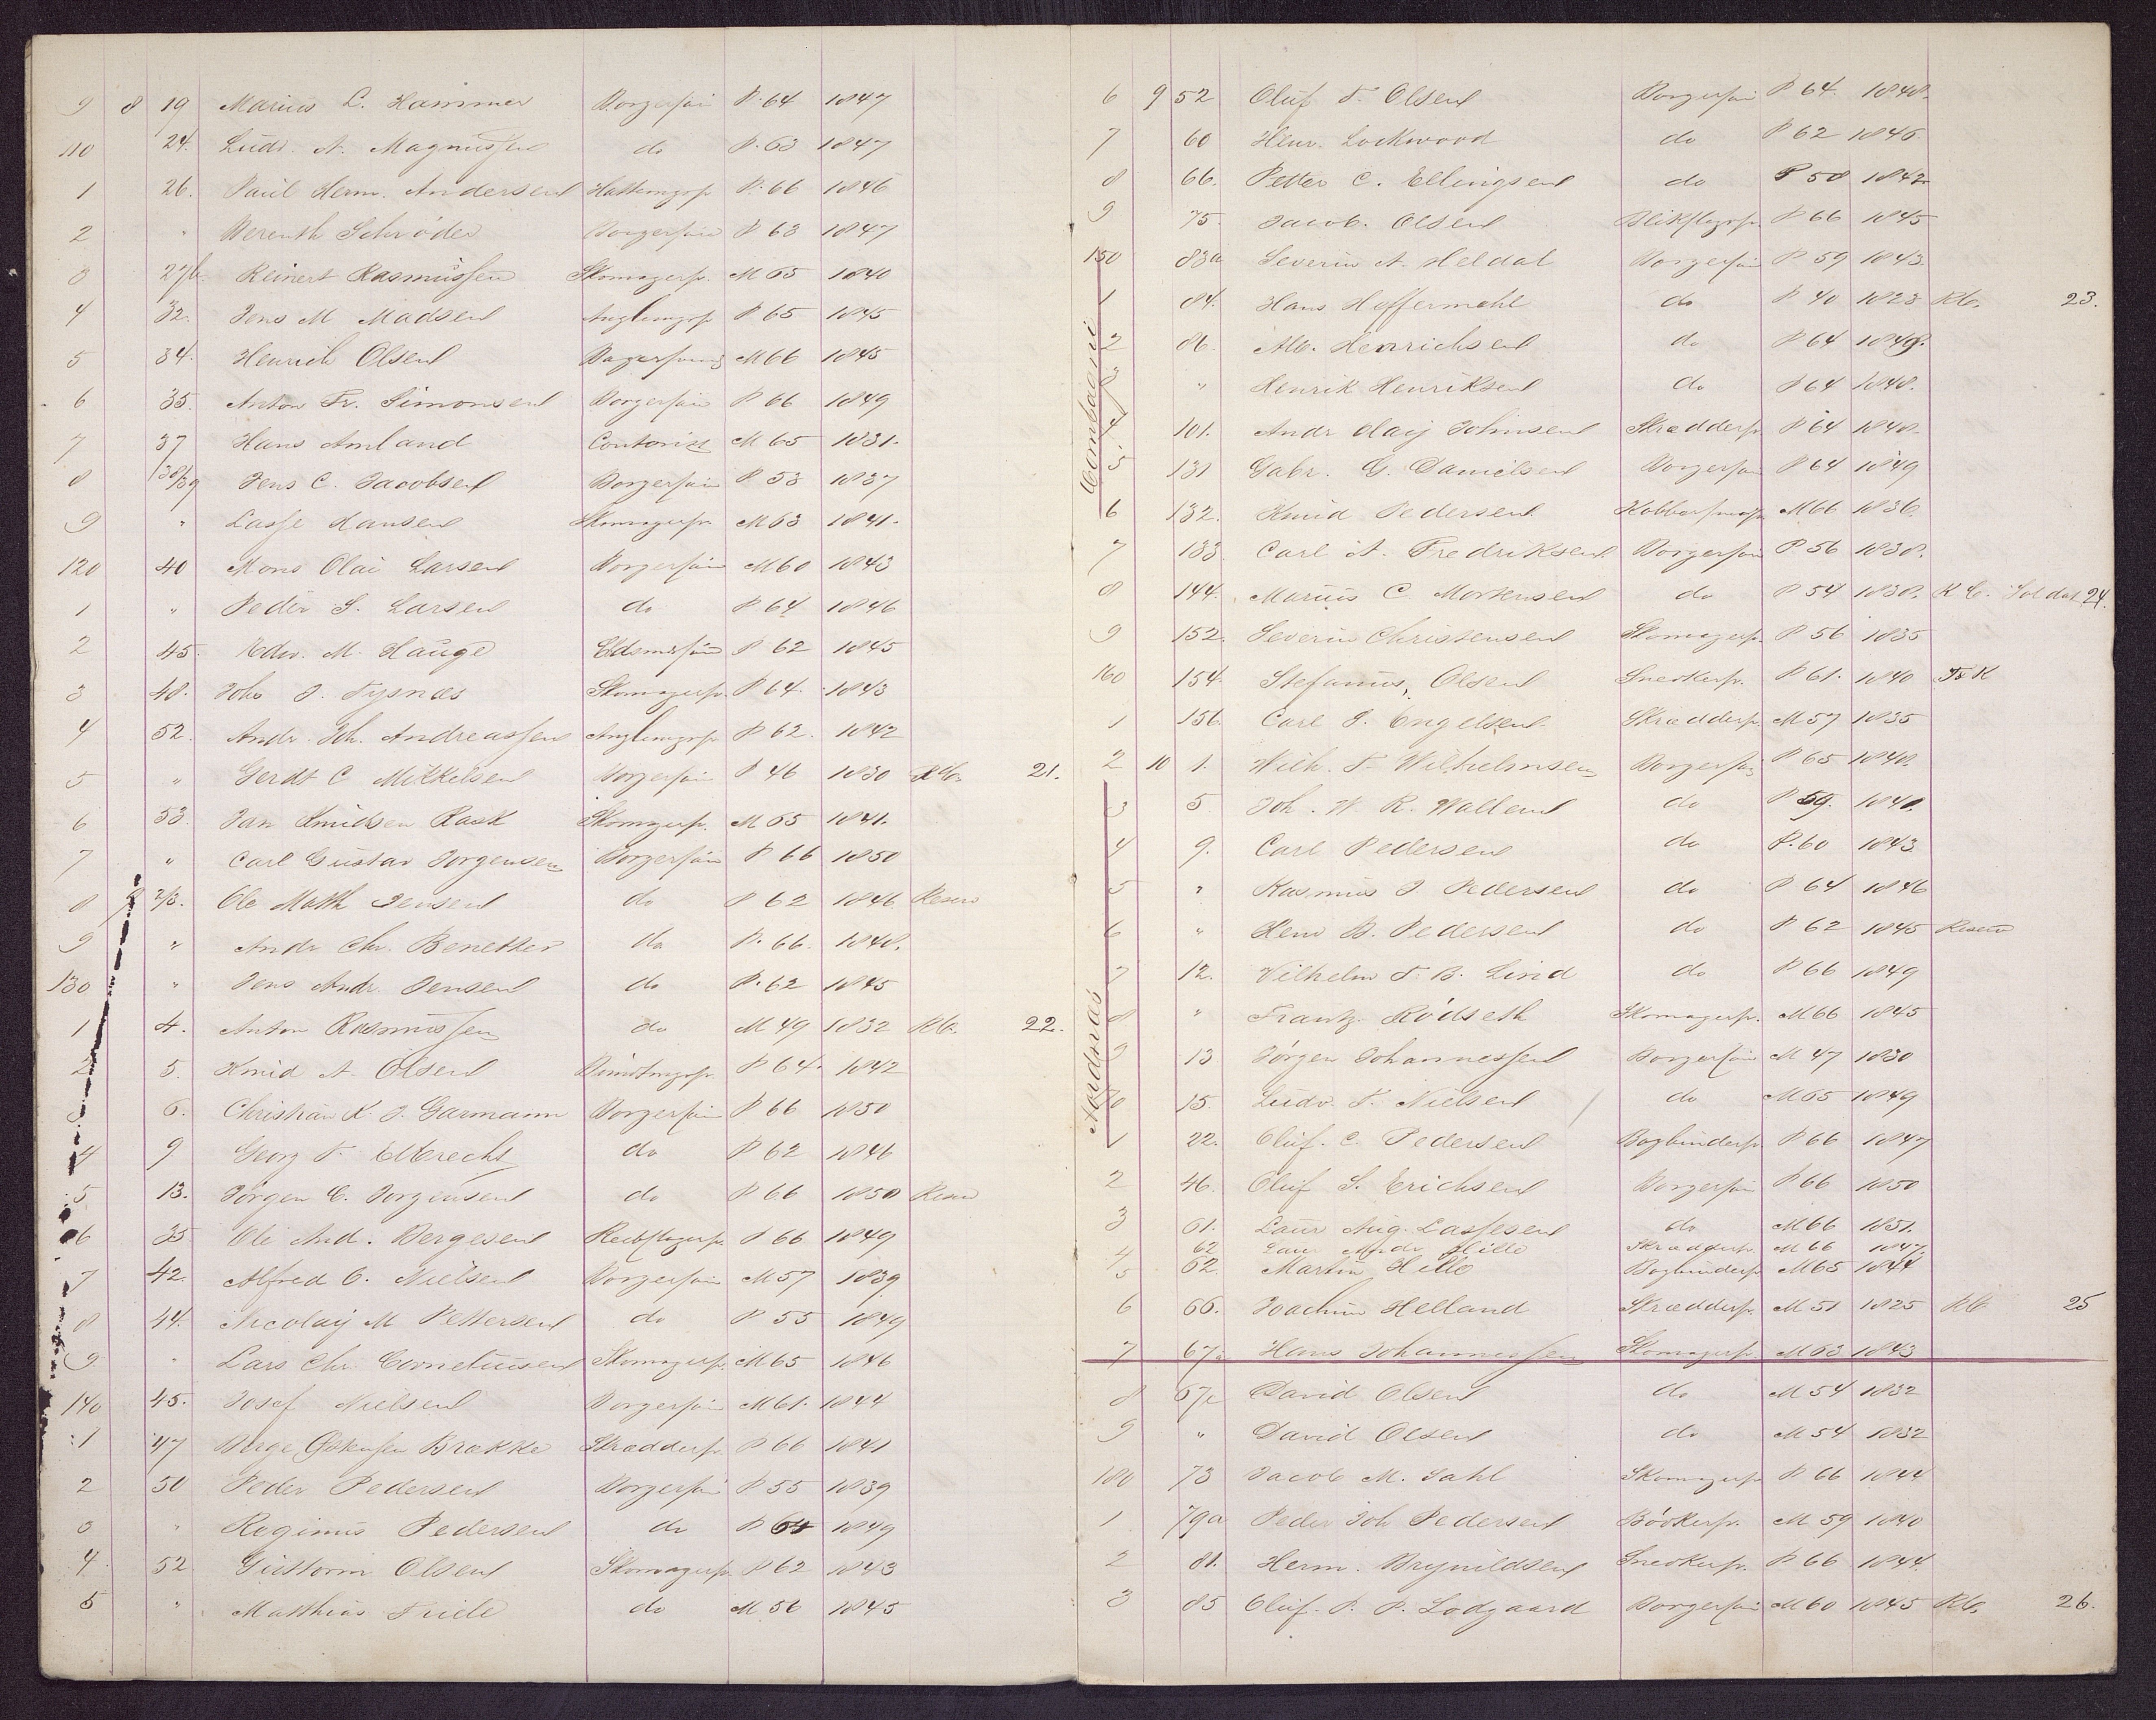 9 8 19 Marius L. Hammer Borgersøn P. 64 1847
110 24. Ludv. A. Magnussen do P. 63 1847
1 26. Paul Herm. Andersen P. 66 1846
2 " Berenth Schrøder Borgersøn P 63 1847
3 27b Reinert Rasmussen Skomagersv. M 65 1840
4 32. Jens M Madsen P 65 1845
5 34. Henrich Olsen M 66 1845
6 35. Anton Fr. Simonsen Borgersøn P 66 1849
7 37 Hans Amland Contorist M 65 1831.
8 38/39 Jens C. Jacobsen Borgersøn P 53 1837
9 " Lasse Hansen Skomagersv. M 63 1841.
120 40 Mons Olai Larsen Borgersøn M 60 1843
1 " Peder S. Larsen do P 64 1846
2 45. Edw. M. Hauge P 62 1845
3 48. Johs J. Tysnæs Skomagersv. P 64. 1843
4 52. Andr. Joh. Andreassen P 62. 1842
5 " Gerdt C Mikkelsen Borgersøn P 46 1830 RC. 21.
6 53. Jan Knudsen Rask Skomagersv. M 65 1841.
7 " Carl Gustav Jørgensen Borgersøn P 66 1850
8 9 2/3. Ole Math Jensen do P 62 1846 Reserv
9 " Andr Chr. Benetter do P. 66. 1848.
130 " Jens Andr. Jensen do P. 62 1845
1 4. Anton Rasmussen do M 49 1832 RC. 22.
2 5. Knud A. Olsen P 64. 1842
3 6. Christian K. J. Garmann Borgersøn P 66 1850
4 9 Georg F. Elbrecht do P 62 1846
5 13. Jørgen C. Jørgensen do P 66 1850 Reserv
6 35 Ole And. Bergesen Rebslagersv. P 66 1849
7 42. Alfred C. Nielsen Borgersøn M 57 1839
8 44. Nicolay M Pettersen do P 55 1849
9 " Lars Chr. Corneliusen Skomagersv. M 65 1846
140 45. Josef Nielsen Borgersøn M 61. 1844
1 47 Berge Brække Skræddersv. P 66 1841
2 50 Peder Pedersen Borgersøn P 55 1839
3 " Reginus Pedersen do P 64 1849
4 52 Guttorm Olsen Skomagersv. P 62 1843
5 " Matthias Friele do M 56 1845
6 9 52 Oluf F. Olsen Borgersøn P 64. 1848.
7 60 Henr. Lockwood do P 62 1846.
8 66. Petter C. Ellingsen do P 58 1842
9 75. Jacob. Olsen Blikslagersv. P 66 1845
150 83a Severin A. Heldal Borgersøn P 59 1843.
1 84. Hans Hoffermehl do P 40 1823 RC. 23.
2 86. Alb. Henrichsen do P 64 1849.
3 " Henrik Henriksen do P 64 1848.
4 101. Andr Olaij Johnsen Skræddersv. P 64 1848
5 131 Gabr. G. Danielsen Borgersøn P 64 1849
6 132. Knud Pedersen M 66 1836.
7 133. Carl A. Fredriksen Borgersøn P 56 1838.
8 144. Marius C. Mortensen do P 54 1838. R C. Soldat 24.
9 152. Severin Christensen Skomagersv. P 56 1835
160 154. Stefanus, Olsen Snedkersv. P 61. 1840
1 156. Carl J. Engelsen Skræddersv. M 57 1835
2 10 1. Wilh. F. Wilhelmsen Borgersøn P 65 1848.
3 5. Joh. W. R. Wallem do P 59. 1840.
4 9. Carl Pedersen do P. 60 1843.
5 " Rasmus J Pedersen do P 64 1846
6 " Henr B. Pedersen do P 62 1845 Reserv
7 12. Vilhelm F. B. Lind do P 66 1849
8 " Frantz. Rødseth Skomagersv. M 66 1845
9 13 Jørgen Johannessen Borgersøn M 47 1830
70 15. Ludv. F. Nielsen do M 65 1849
1 22. Oluf. C. Pedersen Bogbindersv. P 66 1847
2 46. Oluf S. Erichsen Borgersøn P 66 1850
3 61. Laur Aug. Lassesen do M 66 1851.
4 62 Laur Andr Hille Skræddersv. M 66 1847.
5 62. Martin Hille Bogbindersv. M 65 1844
6 66. Joachim Helland Skræddersv. M 51 1825 RC 25
7 67a Hans Johannessen Skomagersv. M 63 1843
8 67c David Olsen do M 54 1832
9 " David Olsen do M 54 1832
180 73 Jacob M. Dahl Skomagersv. P 66 1844
1 79a Peder Joh Pedersen Bødkersv. M 59 1840
2 81. Herm. Brynildsen Snedkersv. P 66 1844.
3 85 Oluf. P. P. Lodgaard Borgersøn M 60 1845 RC. 26.
Compagni
Nordnæs